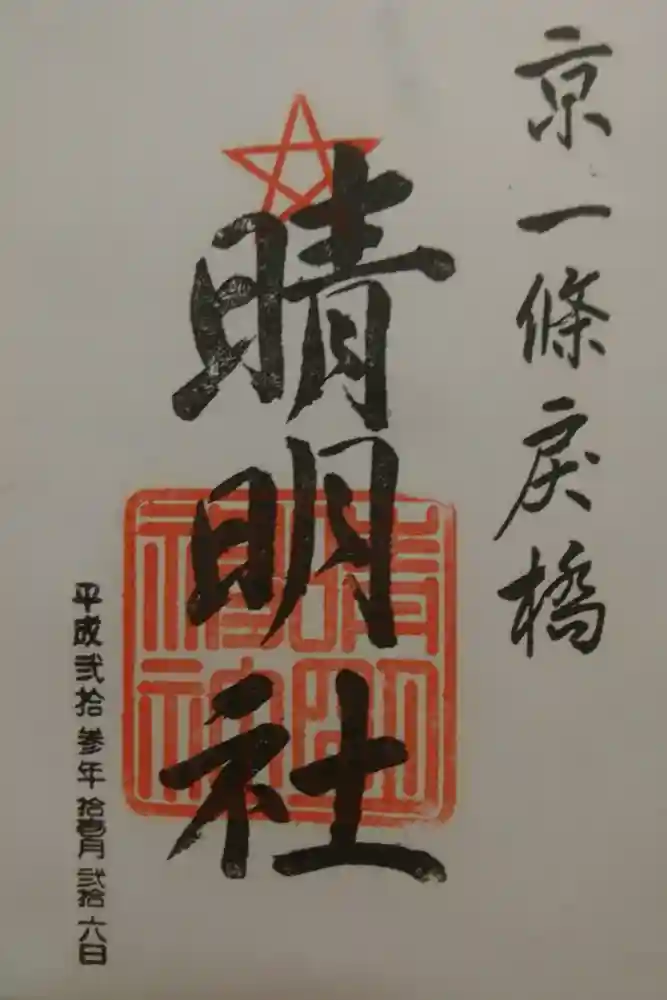 京一條戻橋
晴明社
平成弐拾参年拾壱月弐拾六日